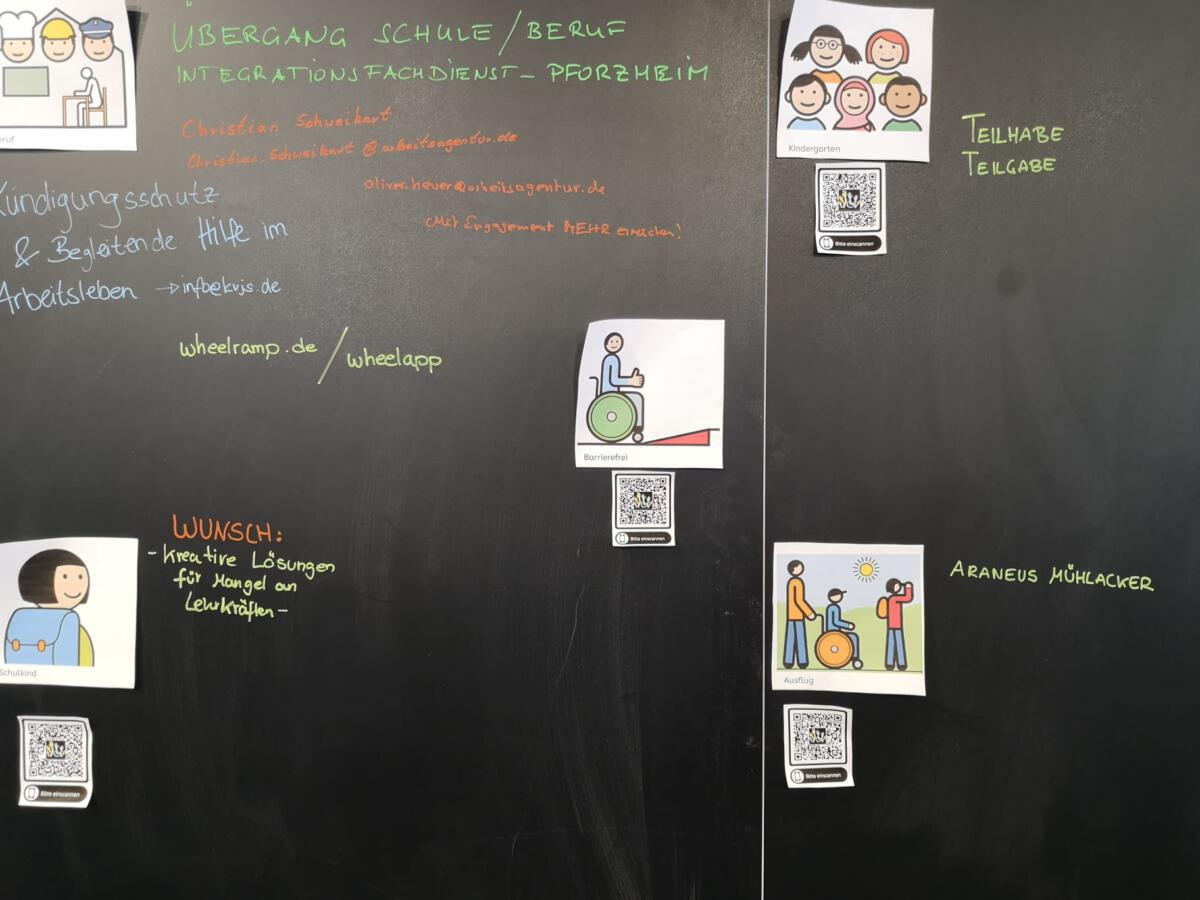 ÜBERGANG SCHULE / BERUF
INTEGRATIONSFACHDIENST - PFORZHEIM
Christian Schweikart
Christian.Schweikart@arbeitsagentur.de
oliver.heuer@arbeitsagentur.de
Mit Engagement MEHR erreichen!
Kündigungsschutz
& Begleitende Hilfe im
Arbeitsleben → info@kvjs.de
wheelramp.de / wheelapp
Barrierefrei
Bitte einscannen
WUNSCH:
- kreative Lösungen
für Mangel an
Lehrkräften -
Schulkind
Bitte einscannen
Kindergarten
Bitte einscannen
TEILHABE
TEILGABE
ARANEUS MÜHLACKER
Ausflug
Bitte einscannen